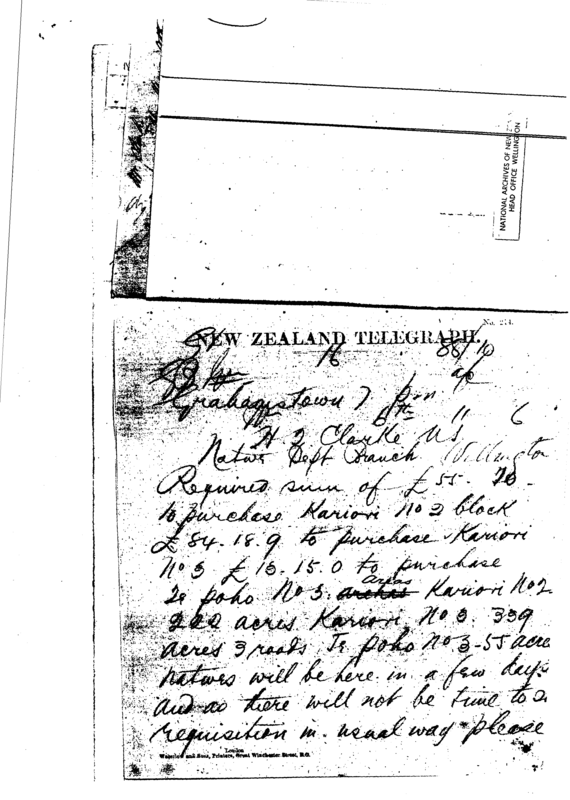 NATIONAL ARCHIVES OF NEW
HEAD OFFICE WELLINGTON
No. 214.
NEW ZEALAND TELEGRAPH.
16 88/10
Grahamstown 7 pm
11 6
H J Clarke US
Native Dept Branch Wellington
Required sum of £55. 10.
to purchase Kariori No 2 block
£84. 18. 9 to purchase Kariori
No 3 £ 13. 15. 0 to purchase
Te poho No 3. Areas Kariori No 2
222 acres Kariori No 3. 339
acres 3 roods Te poho No 3-55 acre
natives will be here in a few days
and as there will not be time to
requisition in usual way please
London
Waterlow and Sons, Printers, Great Winchester Street, E.C.